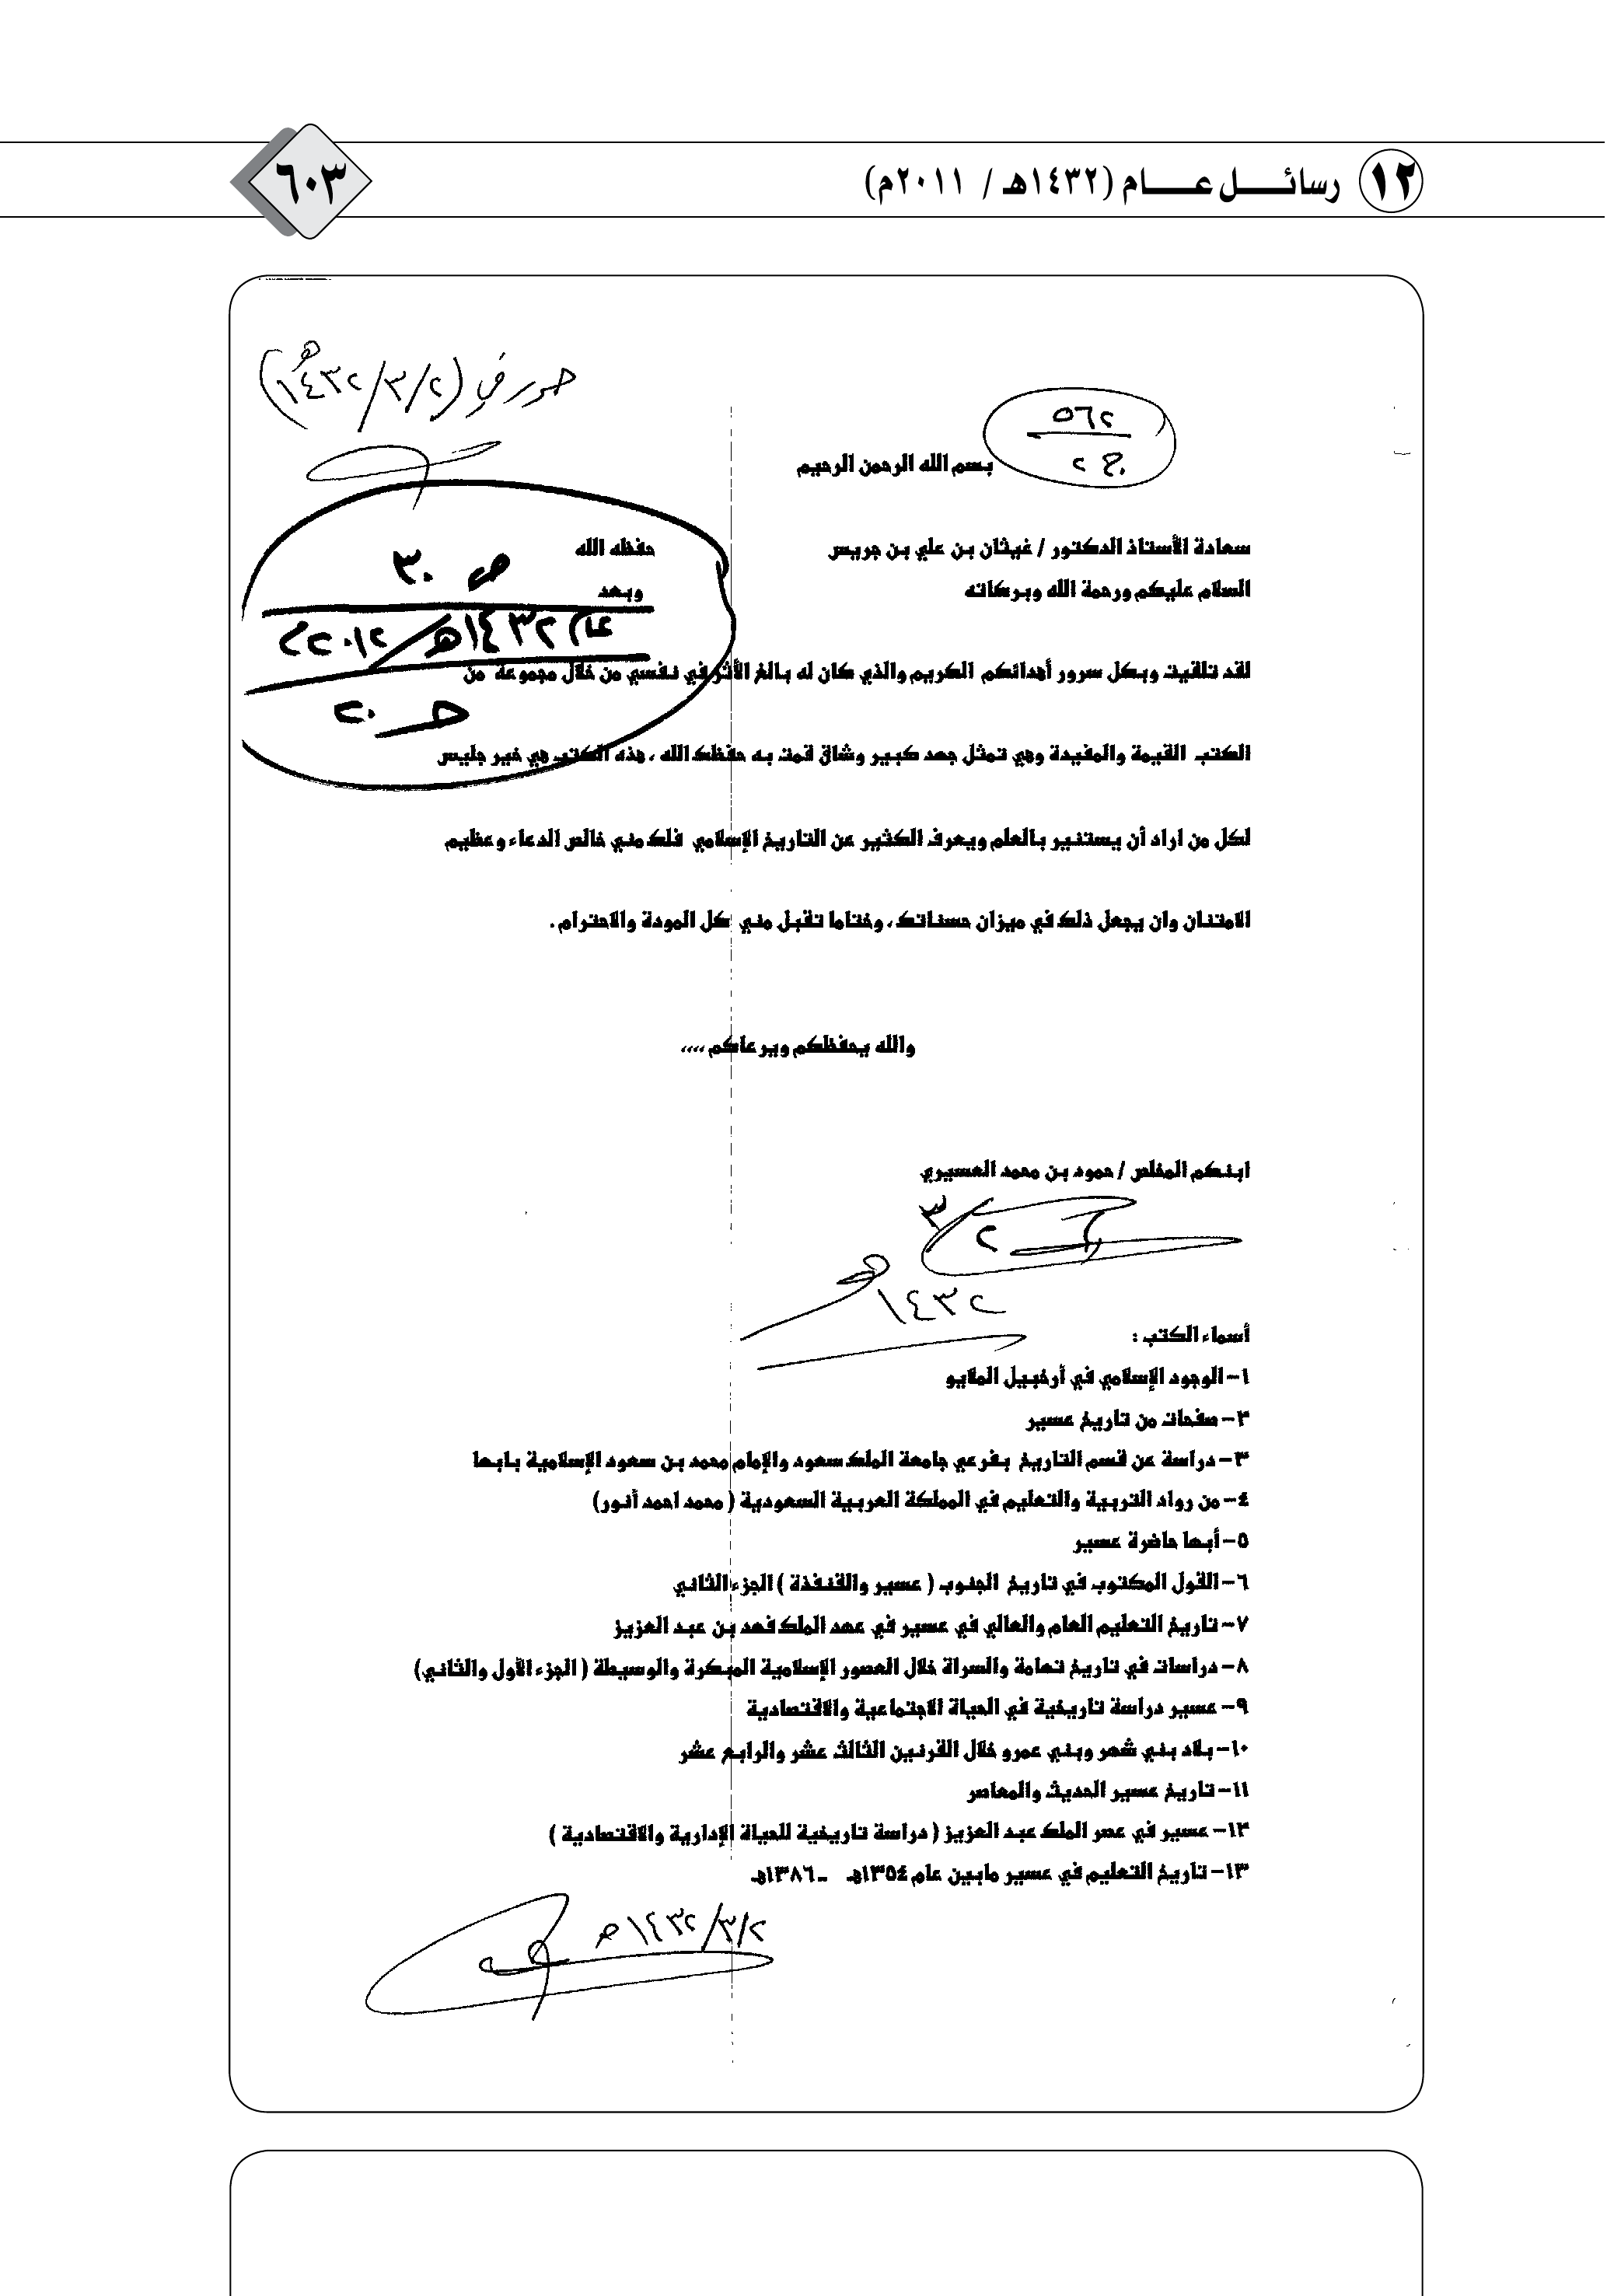 ١٢ رسائـــل عـــام (١٤٣٢هـ / ٢٠١١م)
٦٠٣
حرر في (١٤٣٢/٣/٢هـ)
٥٦٢
ج ٢
بسم الله الرحمن الرحيم
سعادة الأستاذ الدكتور / غيثان بن علي بن جريس حفظه الله
السلام عليكم ورحمة الله وبركاته وبعد
ص ٣٠
عام ١٤٣٢هـ / ٢٠١٢م
ح ٢٠
لقد تلقيت وبكل سرور أهدائكم الكريم والذي كان له بالغ الأثر في نفسي من خلال مجموعة من
الكتب القيمة والمفيدة وهي تمثل جهد كبير وشاق قمت به حفظك الله ، هذه الكتب هي خير جليس
لكل من اراد أن يستنير بالعلم ويعرف الكثير عن التاريخ الإسلامي فلك مني خالص الدعاء وعظيم
الامتنان وان يجعل ذلك في ميزان حسناتك ، وختاما تقبل مني كل المودة والاحترام .
والله يحفظكم ويرعاكم ،،،،
ابنكم المخلص / حمود بن محمد العسيري
٣/٢
١٤٣٢هـ
أسماء الكتب :
١- الوجود الإسلامي في أرخبيل الملايو
٢- صفحات من تاريخ عسير
٣- دراسة عن قسم التاريخ بفرعي جامعة الملك سعود والإمام محمد بن سعود الإسلامية بابها
٤- من رواد التربية والتعليم في المملكة العربية السعودية ( محمد احمد أنور)
٥- أبها حاضرة عسير
٦- القول المكتوب في تاريخ الجنوب ( عسير والقنفذة ) الجزء الثاني
٧- تاريخ التعليم العام والعالي في عسير في عهد الملك فهد بن عبد العزيز
٨- دراسات في تاريخ تهامة والسراة خلال العصور الإسلامية المبكرة والوسيطة ( الجزء الأول والثاني)
٩- عسير دراسة تاريخية في الحياة الاجتماعية والاقتصادية
١٠- بلاد بني شهر وبني عمرو خلال القرنين الثالث عشر والرابع عشر
١١- تاريخ عسير الحديث والمعاصر
١٢- عسير في عصر الملك عبد العزيز ( دراسة تاريخية للحياة الإدارية والاقتصادية )
١٣- تاريخ التعليم في عسير مابين عام ١٣٥٤هـ ـ ١٣٨٦هـ
١٤٣٢/٣/٢هـ